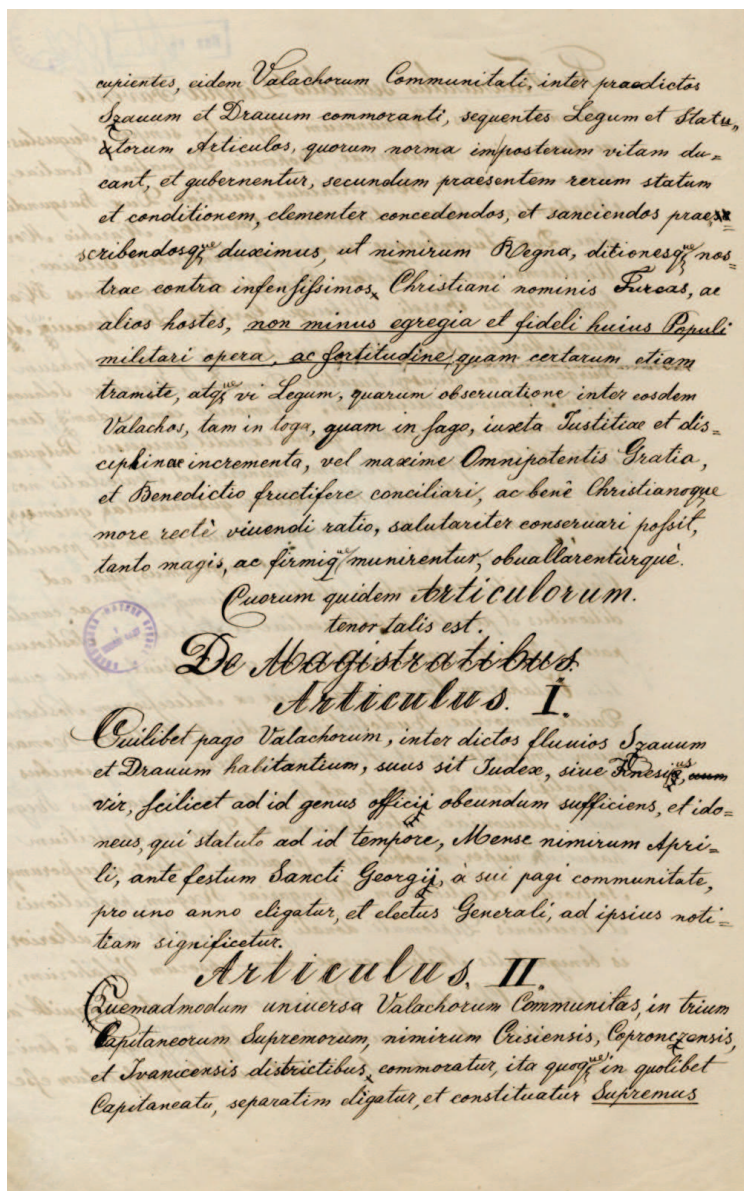 cupientes, eidem Valachorum Communitati, inter praedictos
Szauum et Drauum commoranti, sequentes Legum et Statu„
torum Articulos, quorum norma imposterum vitam du=
cant, et gubernentur, secundum praesentem rerum statum
et conditionem, clementer concedendos, et sanciendos prae=
scribendosq̃ue duximus, ut nimirum Regna, ditionesq̃ue nos=
trae contra infensissimos Christiani nominis Turcas, ac
alios hostes, non minus egregia et fideli huius Populi
militari opera, ac fortitudine, quam certarum etiam
tramite, atq̃ue vi Legum, quarum obseruatione inter eosdem
Valachos, tam in toga, quam in sago, iuxta Iustitiae et dis=
ciplinae incrementa, vel maxime Omnipotentis Gratia,
et Benedictio fructifere conciliari, ac benè Christianoque
more rectè viuendi ratio, salutariter conseruari possit,
tanto magis, ac firmiq̃ue munirentur, obuallarenturquè.
Quorum quidem Articulorum.
tenor talis est.
De Magistratibus.
Articulus. I.
Cuilibet pago Valachorum, inter dictos fluuios Szauum
et Drauum habitantium, suus sit Iudex, siue Knesius,
vir, scilicet ad id genus officij obeundum sufficiens, et ido=
neus, qui statuto ad id tempore, Mense nimirum Apri=
li, ante festum Sancti Georgij, à sui pagi communitate,
pro uno anno eligatur, et electus Generali, ad ipsius noti=
tiam significetur.
Articulus. II.
Quemadmodum universa Valachorum Communitas, in trium
Capitaneorum Supremorum, nimirum Crisiensis, Copronczensis,
et Ivanicensis districtibus commoratur, ita quoq̃ue in quolibet
Capitaneatu, separatim eligatur, et constituatur Supremus